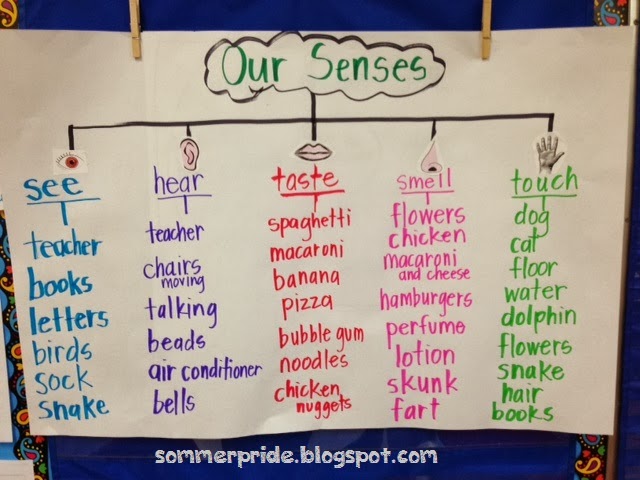 Our Senses
see
teacher
books
letters
birds
sock
snake
hear
teacher
chairs
moving
talking
beads
air conditioner
bells
taste
spaghetti
macaroni
banana
pizza
bubble gum
noodles
chicken
nuggets
smell
flowers
chicken
macaroni
and cheese
hamburgers
perfume
lotion
skunk
fart
touch
dog
cat
floor
water
dolphin
flowers
snake
hair
books
sommerpride.blogspot.com